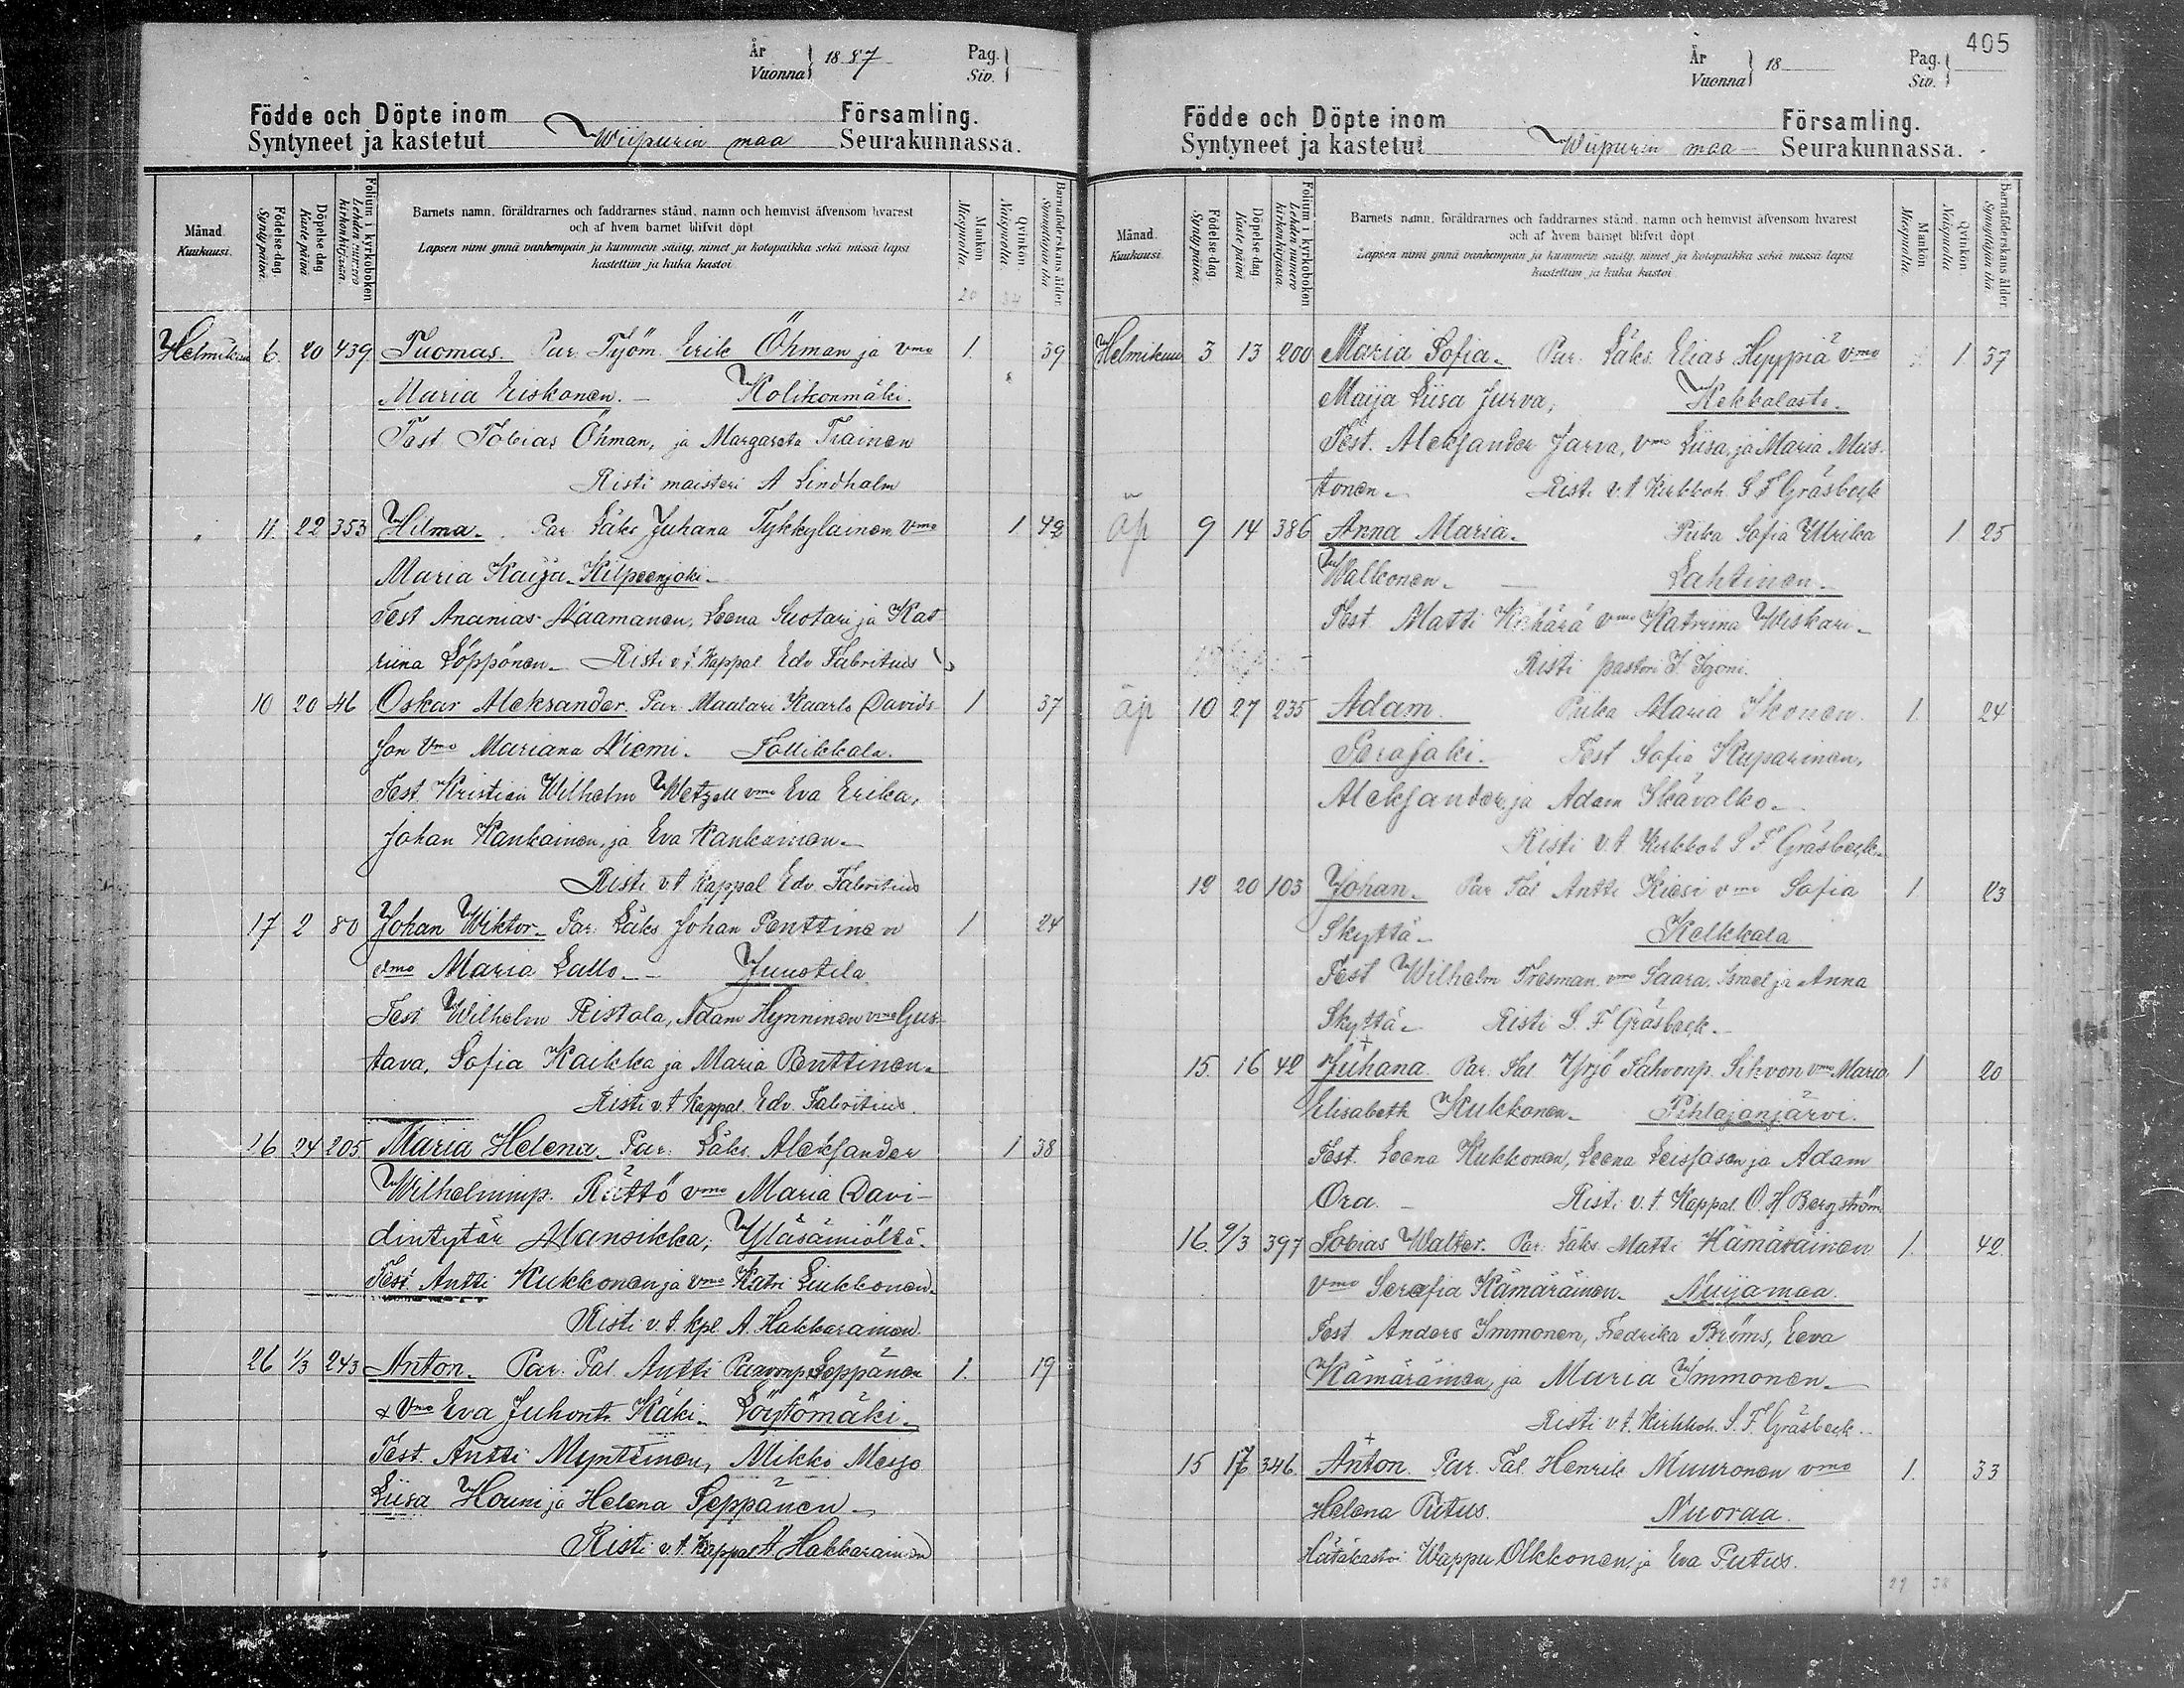 År
Vuonna } 18 87
Pag.
Siv. }
Födde och Döpte inom Församling.
Syntyneet ja kastetut Wiipurin maa Seurakunnassa.
Månad.
Kuukausi.
Födelse-dag.
Synty päivä.
Döpelse-dag
Kaste päivä
Folium i kyrkoboken
Lehden numero kirkonkirjassa.
Barnets namn, föräldrarnes och faddrarnes stånd, namn och hemvist äfvensom hvarest
och af hvem barnet blifvit döpt
Lapsen nimi ynnä vanhempain ja kummein sääty, nimet ja kotopaikka sekä missä lapsi
kastettiin ja kuka kastoi
Mankön.
Miespuolta.
Qvinkön.
Naispuolta.
Barnaföderskans ålder.
Synnyttäjän ikä
20 34
Helmikuu 6. 20 439 Tuomas. Par. Työm. Erik Öhman ja vmo 1. 39
Maria Eiskonen. – Kolikonmäki.
Test Tobias Öhman, ja Margareta Trainen
Risti maisteri A Lindholm
" 11. 22 353 Hilma. Par Läks Juhana Tykkylainen Vmo 1 42
Maria Kaija – Kilpeenjoki –
Test Ananias Naamanen, Leena Suotari ja Kat
riina Löppönen – Risti v.t. Kappal. Edv Fabritius
10 20 46 Oskar Aleksander. Par Maalari Kaarlo Davids 1 37
son Vmo Mariana Niemi. Tollikkala.
Test Kristian Wilhelm Wetzell vmo Eva Erika,
Johan Kankainen, ja Eva Kankainen –
Risti v.t Kappal Edv. Fabritius
17 2 80 Johan Wiktor – Par: Läks Johan Penttinen 1 24
vmo Maria Lallo – – Juustila
Test Wilhelm Ristola, Adam Hynninen vmo Gus
tava, Sofia Kaikka ja Maria Penttinen –
Risti v.t Kappal. Edv. Fabritius.
26 24 205 Maria Helena – Par: Läks. Aleksander 1 38
Wilhelminp. Rättö vmo Maria Davi-
dintytär Mansikka; Yläsämiöltä.
Test Antti Kukkonen ja vmo Katri Liukkonen.
Risti v.t. kpl. A. Hakkarainen.
26 1/3 243 Anton. Par. Tal. Antti Paavonp. Seppänen 1. 19
& Vmo Eva Juhontr. Käki – Löytömäki –
Test. Antti Mynttinen, Mikko Mesjo
Liisa Houni ja Helena Seppänen –
Risti v.t. Kappal A Hakkarainen
405
År
Vuonna } 18
Pag.
Siv. }
Födde och Döpte inom Församling.
Syntyneet ja kastetut Wiipurin maa – Seurakunnassa.
Månad.
Kuukausi
Födelse-dag.
Synty päivä.
Döpelse-dag
Kaste päivä
Folium i kyrkoboken
Lehden numero kirkonkirjassa.
Barnets namn, föräldrarnes och faddrarnes stånd, namn och hemvist äfvensom hvarest
och af hvem barnet blifvit döpt
Lapsen nimi ynnä vanhempain ja kummein sääty, nimet ja kotopaikka sekä missä lapsi
kastettiin ja kuka kastoi
Mankön
Miespuolta.
Qvinkön
Naispuolta
Barnaföderskans ålder
Synnyttäjän ikä
Helmikuu 3 13 200 Maria Sofia – Par. Läks. Elias Hyppiä vmo 1 37
Maija Liisa Jurva, Kekkalasta.
Test. Aleksander Jarva, vmo Liisa, ja Maria Mus.
tonen – Risti v.t Kirkkoh. S F Gräsbeck
äp 9 14 386 Anna Maria. Piika Sofia Ulrika 1. 25
Walkonen – Lahtinen –
Test. Matti Kähärä vmo Katriina Wiskari –
Risti pastori J. Igoni.
äp 10 27 235 Adam. Piika Maria Ikonen. 1. 24
Perojoki. Test Sofia Kuparinen,
Aleksander, ja Adam Skävalko –
Risti v.t Kirkkoh S F Gräsbeck –
12 20 103 Johan. Par Tal Antti Kiesi vmo Sofia 1. 23
Skyttä – Kelkkala
Test Wilhelm Tresman vmo Saara, Israel ja Anna
Skyttä – Risti S. F Gräsbeck –
15. 16 42 Juhana. Par. Tal Yrjö Tahvonp. Sihvon vmo Maria 1 20
Elisabeth Kukkonen – Pihlajanjärvi.
Test. Leena Kukkonen, Leena Leissasen ja Adam
Ora. – Risti v.t. Kappal. O. H Bergström
16. 9/3 397 Tobias Walter. Par: Läks Matti Hämäräinen 1. 42
vmo Serafia Kämäräinen – Nuijamaa.
Test Anders Immonen, Fredrika Bröms, Eeva
Kämäräinen, ja Maria Immonen –
Risti v.t. Kirkkoh. S. F. Gräsbeck –
15 17 346. Anton. Par. Tal. Henrik Muuronen vmo 1. 33
Helena Putus. Nuoraa.
Hätäkastoi Wappu Olkkonen, ja Eva Putus.